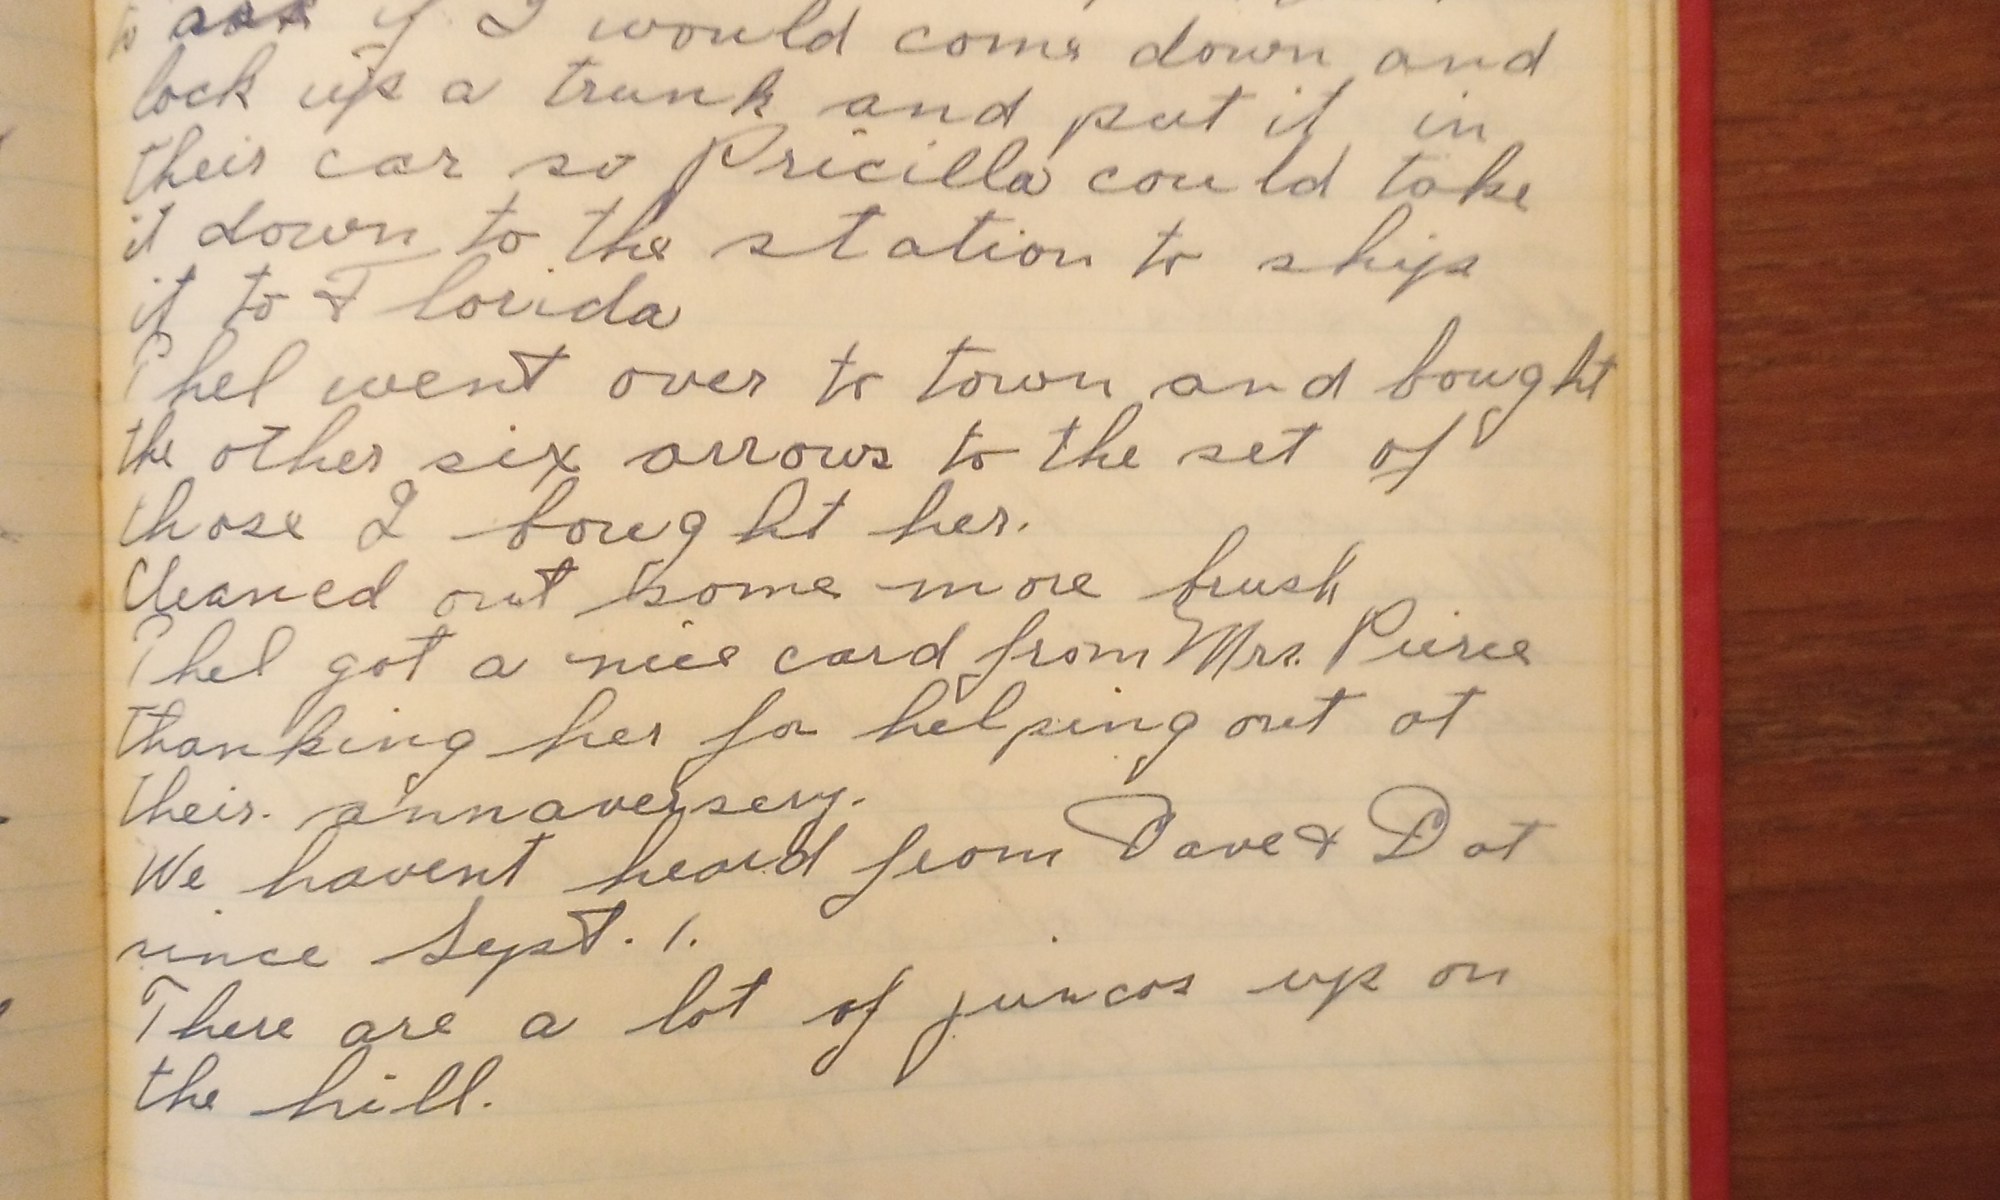 to ask if I would come down and
lock up a trunk and put it in
their car so Pricilla could take
it down to the station to ship
it to Florida
Phel went over to town and bought
the other six arrows to the set of
those I bought her.
Cleaned out some more brush
Phel got a nice card from Mrs. Pierce
thanking her for helping out at
their. annaversery.
We havent heard from Dave & Dot
since Sept. 1.
There are a lot of juncos up on
the hill.